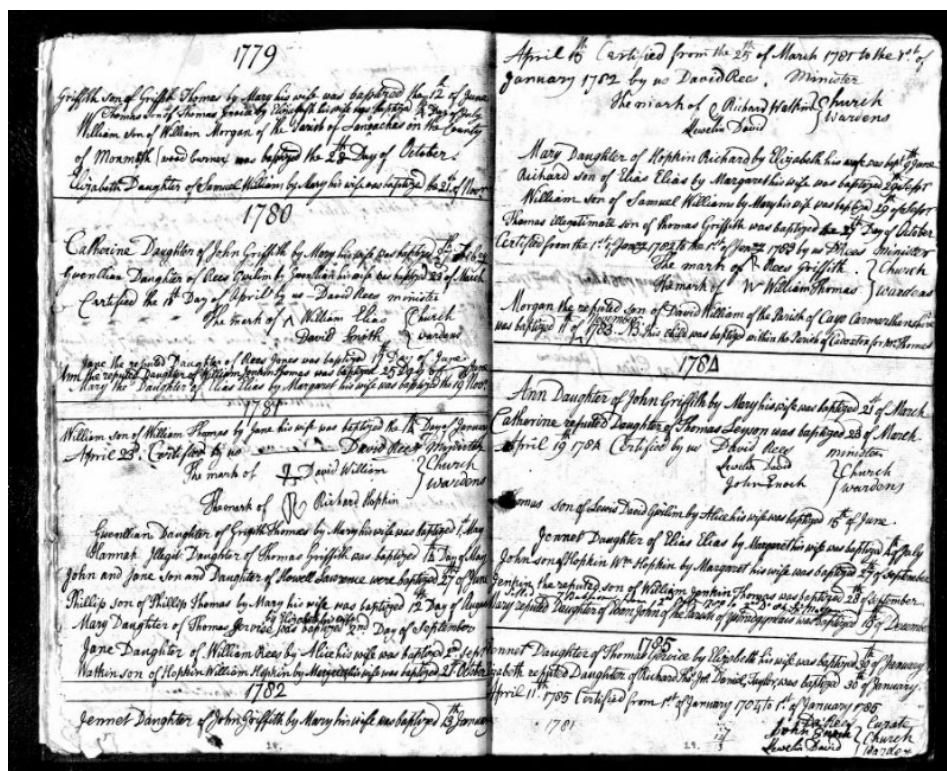 1779
Griffith son of Griffith Thomas by Mary his wife was baptized the 12th of June
Thomas son of Thomas by Elizabeth his wife was baptized Day of July
William son of William Morgan of the Parish of on the County
of Monmoth (wood Corner) was baptized the 28th Day of October.
Elizabeth Daughter of Samuel William by Mary his wife was baptized the 21st of Novr
1780
Catherine Daughter of John Griffith by Mary his wife was baptized
Gwenllian Daughter of Rees Gwilim by Gwenllian his wife was baptized 23 of March
Certified the Day of April by us David Rees minister
The mark of William Elias Church
David Smith wardens
Jane the reputed Daughter of Rees Jones was baptized 17th Day of June
Ann the reputed Daughter of William Jenkin Thomas was baptized 25 Day of June
Mary the Daughter of Elias Elias by Margaret his wife was baptized the 19 Novr
1781
William son of William Thomas by Jane his wife was baptized the Day of January
April 23. Certified by us David Rees
The mark of David William Church
wardens
The mark of Richard Hopkin
Gwenllian Daughter of Griffith Thomas by Mary his wife was baptized 1st May
Hannah Illegit Daughter of Thomas Griffith was baptized Day of May
John and Jane son and Daughter of Howell Lawrence were baptized 27th of June
Phillip son of Phillip Thomas by Mary his wife was baptized 12th Day of August
by Elizabeth his wife
Mary Daughter of Thomas was baptized 2nd Day of September
Jane Daughter of William Rees by Alice his wife was baptized 2nd Sept
Watkin son of Hopkin William Hopkin by Margaret his wife was baptized 21 October
1782
Jennet Daughter of John Griffith by Mary his wife was baptized 13th January
28.
April 16th Certified from the 25th of March 1781 to the 1st of
January 1782 by us David Rees. Minister
The mark of Richard Watkin Church
Lewelin David wardens
Mary Daughter of Hopkin Richard by Elizabeth his wife was bapt of June
Richard son of Elias Elias by Margaret his wife was baptized 29th
William son of Samuel Williams by Mary his wife was baptized 29th of
Thomas illegitimate son of Thomas Griffith was baptized the Day of October
Certified from the 1st of 1782 to the 1st of 1783 by us D Rees minister
The mark of Rees Griffith. Church
The mark of W William Thomas wardens
Morgan the reputed son of David William of the Parish of Cayo Carmarthenshire
was baptized 11 of 1783 NB this child was baptized within the Parish of for Mr Thomas
1784
Ann Daughter of John Griffith by Mary his wife was baptized 21st of March
Catherine reputed Daughter of Thomas Leyson was baptized 23 of March
April 19 1784 Certified by us David Rees minister
Lewelin David Church
John Enoch wardens
Thomas son of Lewis David Gwilim by Alice his wife was baptized 15th of June.
Jennet Daughter of Elias Elias by Margaret his wife was baptized of July
John son of Hopkin Wm Hopkin by Margaret his wife was baptized 27th of September
Jenkin the reputed son of William Jenkin Thomas was baptized 28th of September
Mary reputed Daughter of John of the Parish of was baptized 15 of December
1785
Jennet Daughter of Thomas by Elizabeth his wife was baptized 30th of January
Elizabeth reputed Daughter of Richard Daniel, Taylor, was baptized 30th of January.
April 11th 1785 Certified from 1st of January 1784 to 1st of January 1785
1781
D Rees Curate
John Enoch Church
Lewelin David Warden
29.